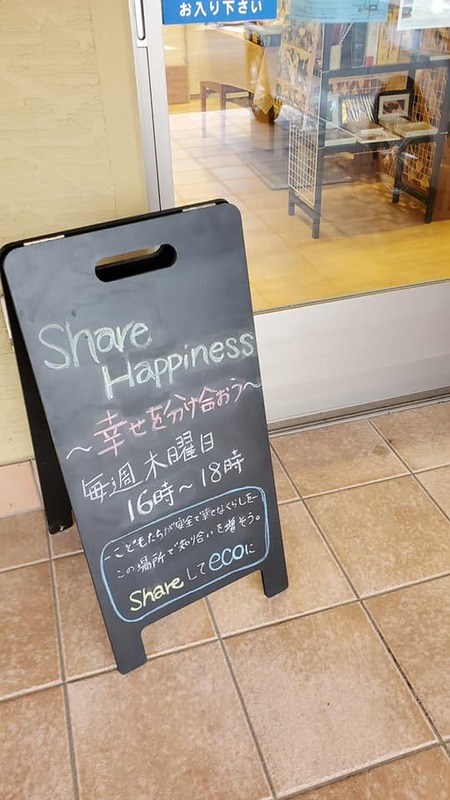 お入り下さい
Share
Happiness
～幸せを分け合おう～
毎週木曜日
16時～18時
こどもたちが安全で幸せなくらしを
この場所で知り合いを増そう。
Shareしてecoに